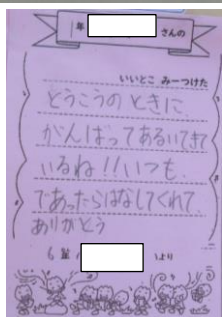 年 さんの
いいとこ みーつけた
とうこうのときに、
がんばってあるいてきて
いるね!!いつも、
であったらはなしてくれて
ありがとう
6 より